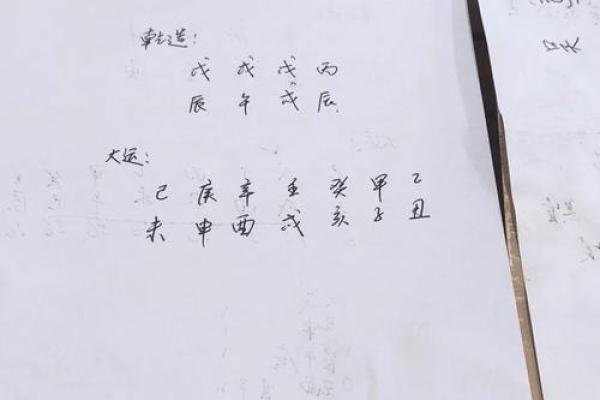 乾造：
戊 戊 戊 丙
辰 午 戌 辰
大运：
己 庚 辛 壬 癸 甲 乙
未 申 酉 戌 亥 子 丑